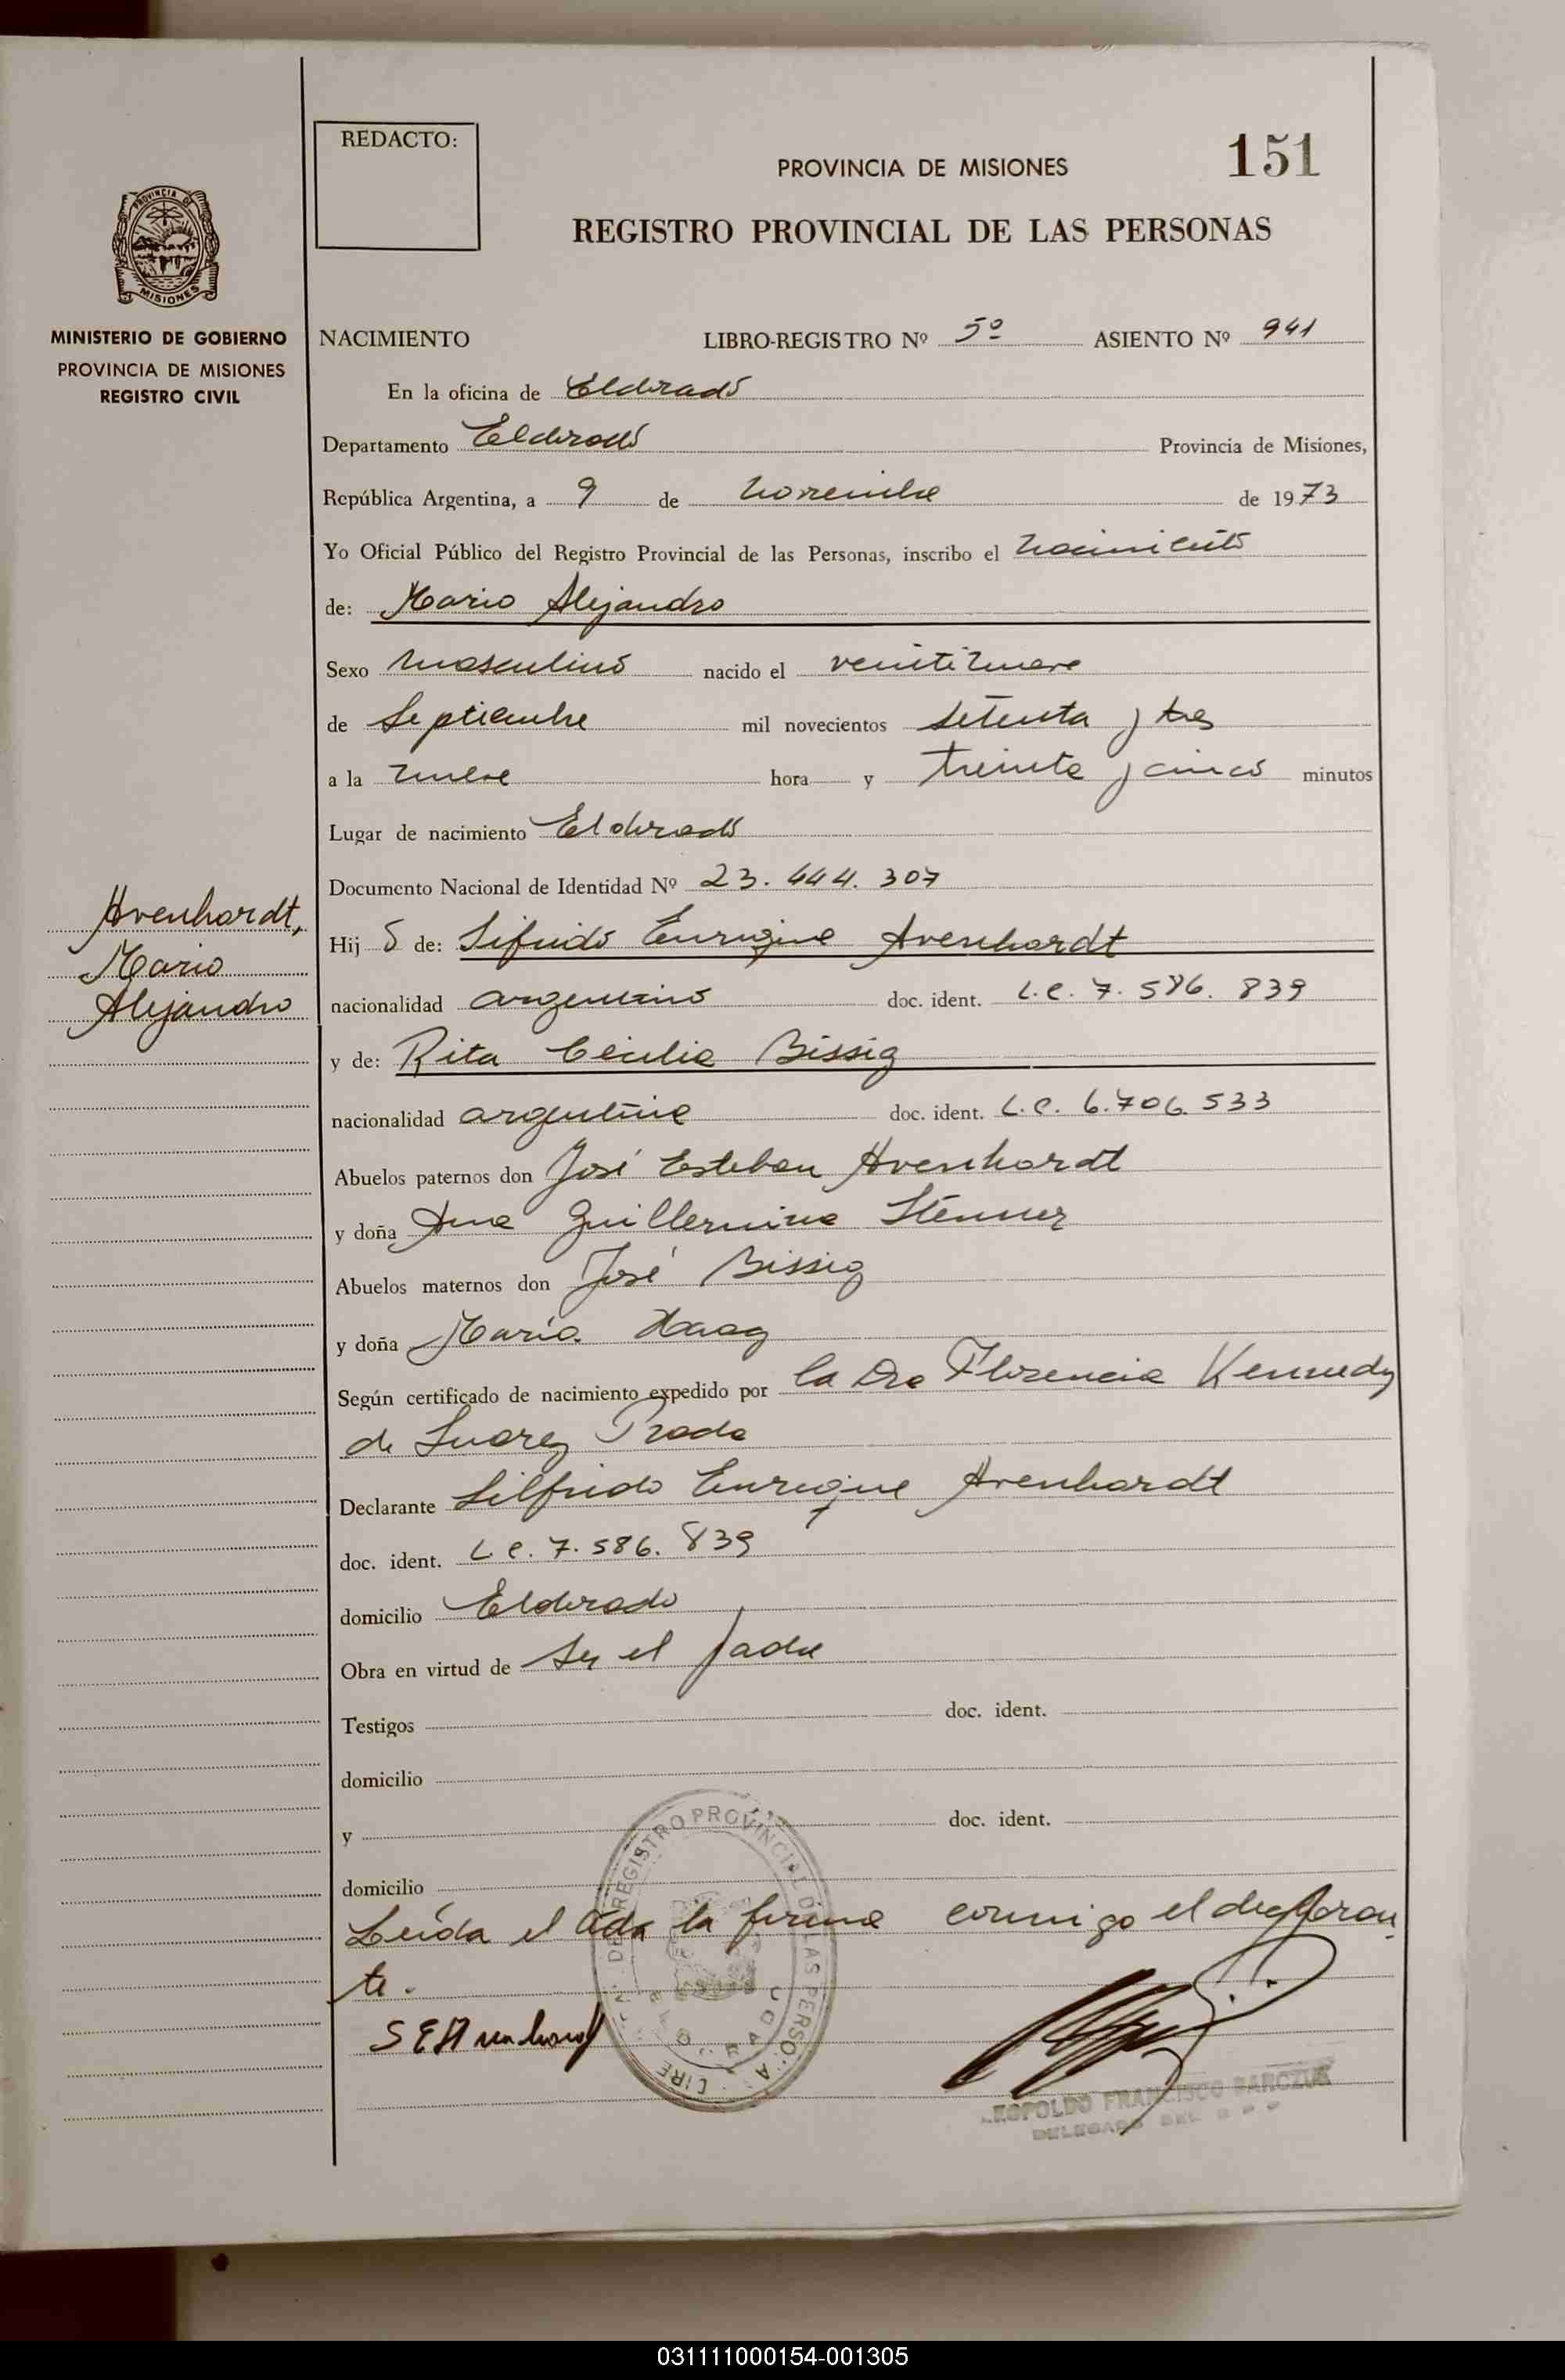 REDACTO:
PROVINCIA DE MISIONES
151
REGISTRO PROVINCIAL DE LAS PERSONAS
PROVINCIA DE
MISIONES
MINISTERIO DE GOBIERNO
PROVINCIA DE MISIONES
REGISTRO CIVIL
NACIMIENTO LIBRO-REGISTRO Nº 5º ASIENTO Nº 941
En la oficina de Eldorado
Departamento Eldorado Provincia de Misiones,
República Argentina, a 9 de noviembre de 1973
Yo Oficial Público del Registro Provincial de las Personas, inscribo el nacimiento
de: Mario Alejandro
Sexo masculino nacido el veintinueve
de Septiembre mil novecientos setenta y tres
a la nueve hora y treinta y cinco minutos
Lugar de nacimiento Eldorado
Documento Nacional de Identidad Nº 23.444.307
Avenhardt,
Mario
Alejandro
Hij o de: Sifrido Enrique Avenhardt
nacionalidad argentino doc. ident. L.E. 7.586.839
y de: Rita Cecilia Bissig
nacionalidad argentina doc. ident. L.C. 6.706.533
Abuelos paternos don José Esteban Avenhardt
y doña Ana Guillermina
Abuelos maternos don José Bissig
y doña María Haag
Según certificado de nacimiento expedido por la Dra Florencia Kennedy
de Suarez Prada
Declarante Silfrido Enrique Avenhardt
doc. ident. L.E. 7.586.839
domicilio Eldorado
Obra en virtud de ser el padre
Testigos doc. ident.
domicilio
y doc. ident.
domicilio
Leída el acta la firma conmigo el declaran
te.
REGISTRO PROVINCIAL DE LAS PERSONAS
LEOPOLDO FRANCISCO BARCZUK
DELEGADO DEL
031111000154-001305